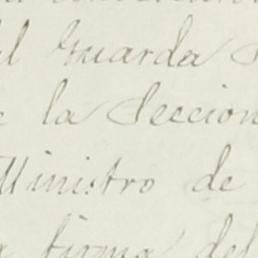 el Guarda
de la Seccion
Ministro de
la firma del